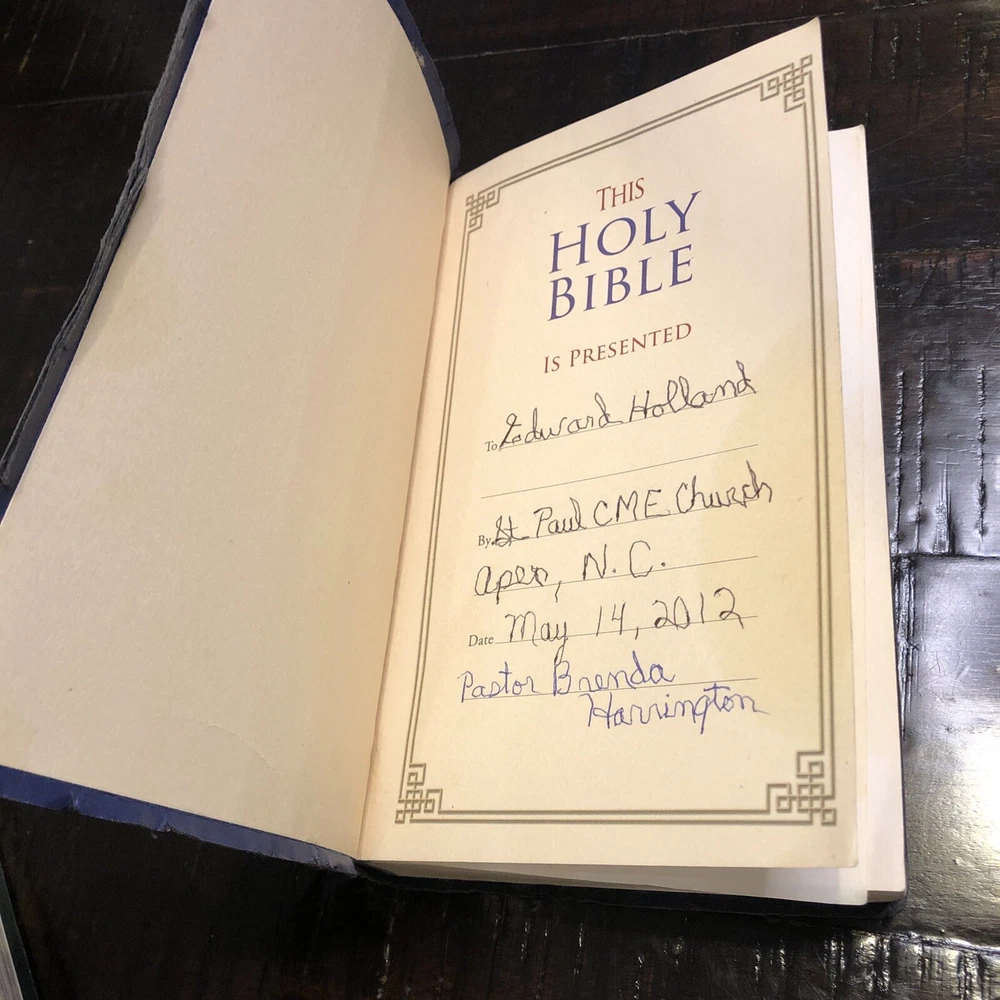 THIS
HOLY
BIBLE
IS PRESENTED
To Edward Holland
By St Paul CME Church
Apex, N.C.
Date May 14, 2012
Pastor Brenda
Harrington